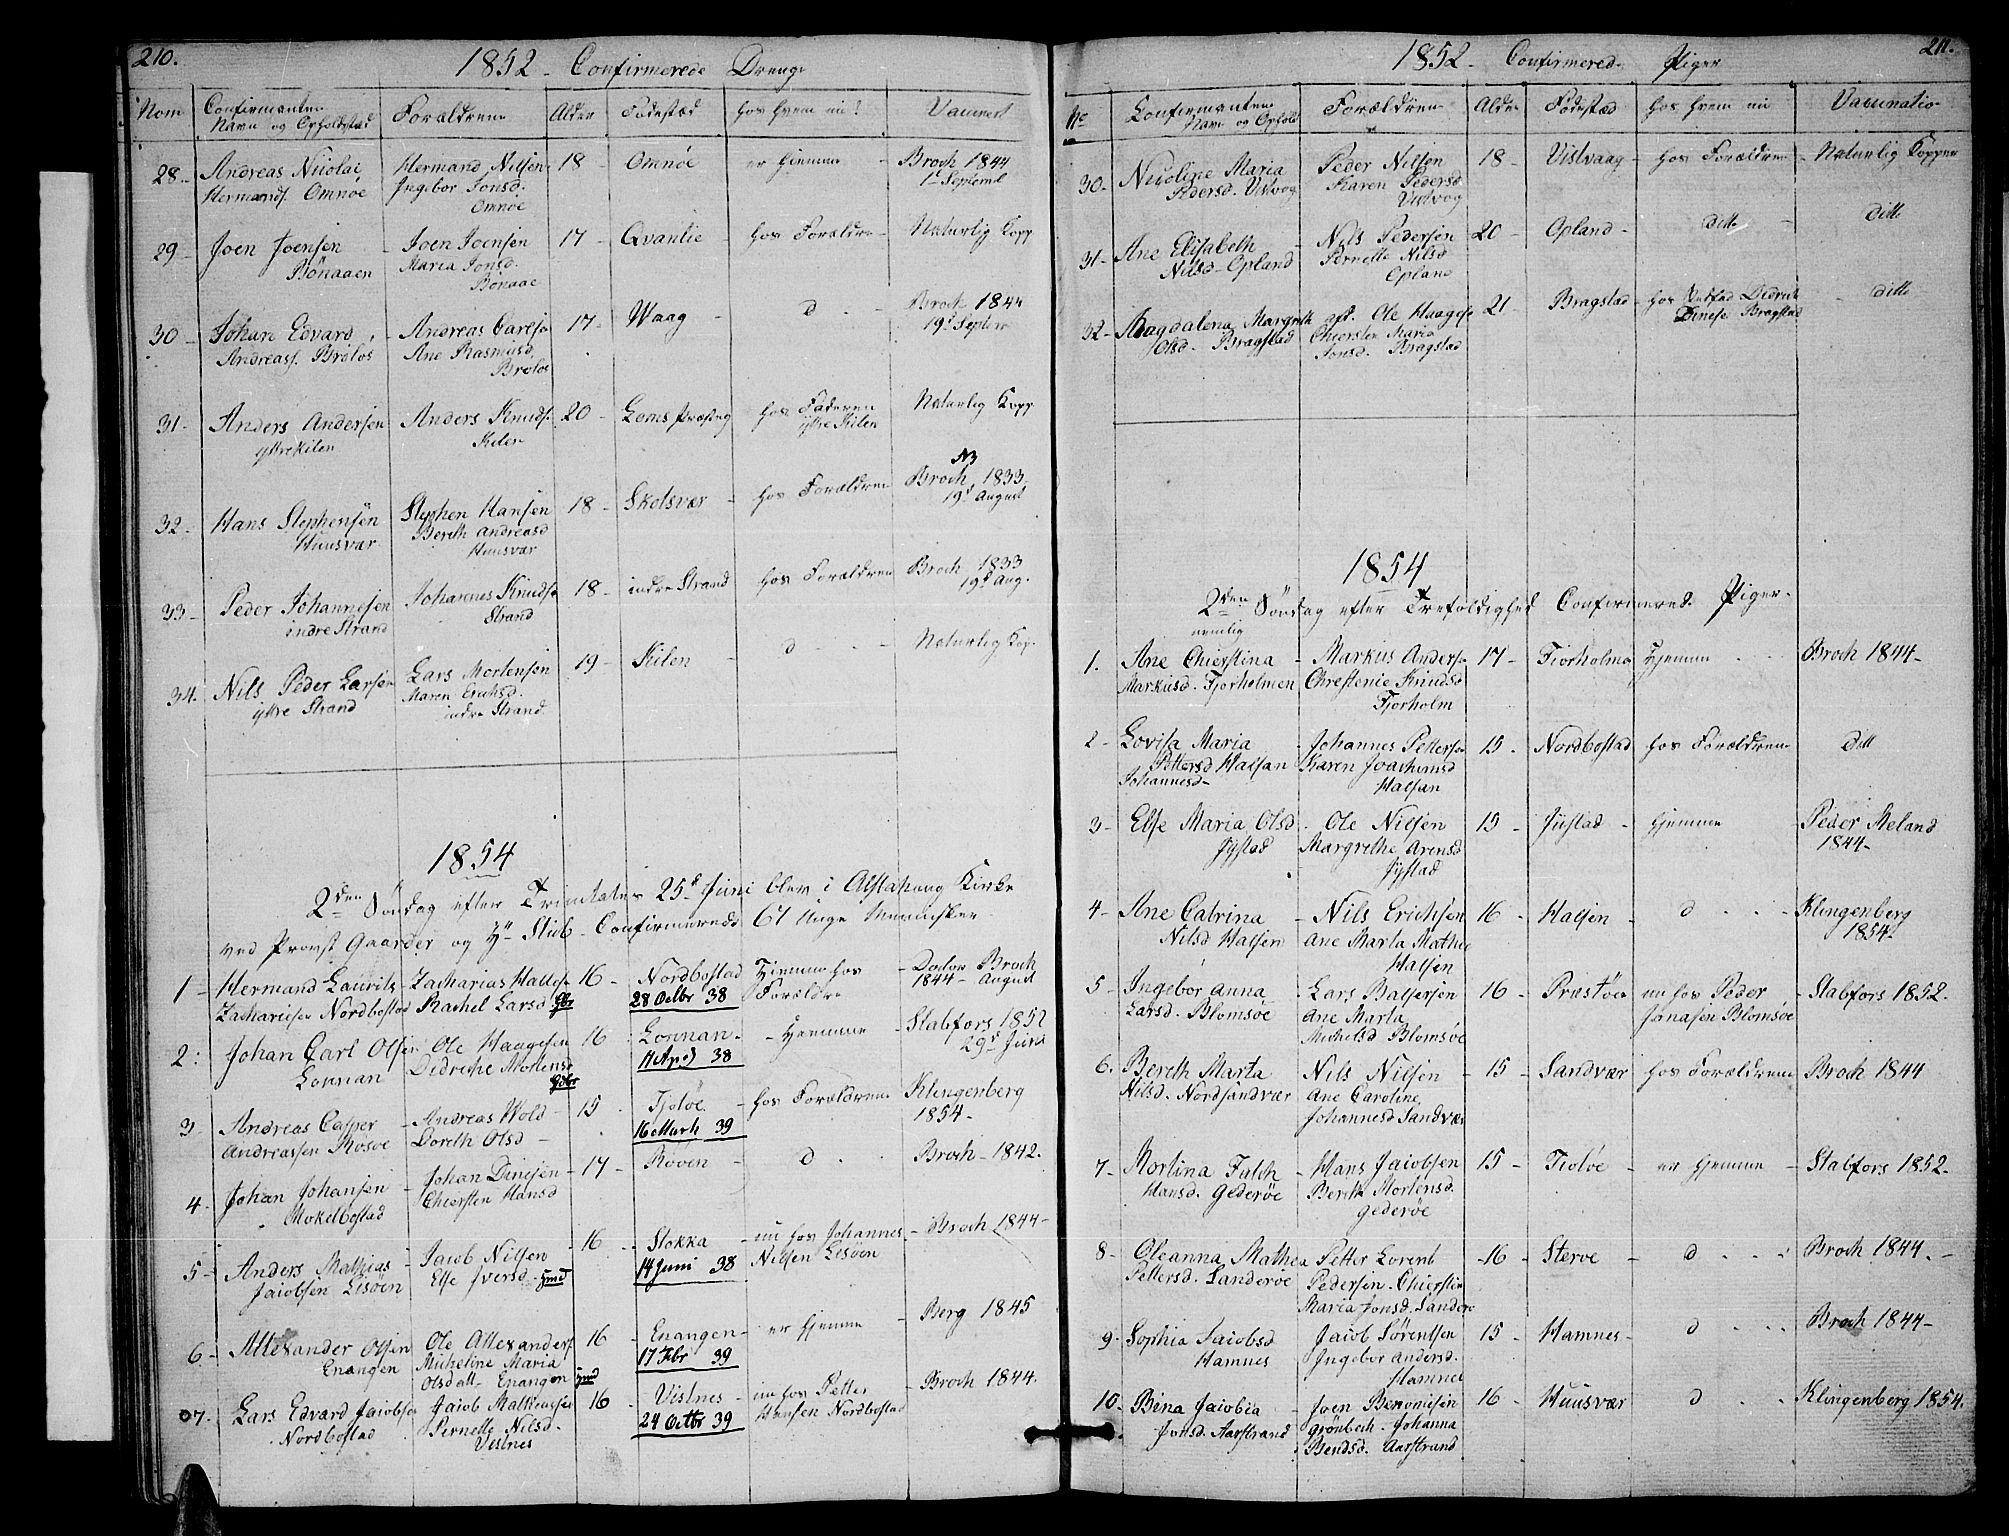 210.
1852 - Confirmerede Drenge
Nom
Confirmantens
Navn og Opholdsted
Forældrene
Alder
Fødested
hos hvem nu?
Vaccinert
28 - Andreas Nicolai
Hermands. Omnøe
Hermand Nilsen
Ingebor Jonsd.
Omnøe
18 - Omnøe
er hjemme
Broch 1844
1 Septemb
29 Joen Joensen
Bönaaen
Joen Joensen
Maria Jonsd.
Bönaae
17 - Qvantie - hos Forældre - Naturlig Kopp
30 - Johan Edvard
Andreass. Brølos
Andreas Carlsen
Ane Rasmusd
Brølos
17 - Waag - d -
Broch 1844
19d Septbr
31 - Anders Andersen
yttre Kilen
Anders Knuds.
Kilen
20 - Lems Præsteg
hos Faderen
yttre Kilen
Naturlig Kopp
32 - Hans Stephensen
Huusvær
Stephen Hansen
Bereth Andreasd
Huusvær
18 - Skotsvær - hos Forældrene
N3
Broch 1833
19d August
33 - Peder Johannesen
indre Strand
Johannes Knuds.
Strand
18 - indre Strand hos Forældrene
Broch 1833
19d Aug.
34. Nils Peder Larsen
yttre Strand
Lars Mortensen
Maren Erichsd.
indre Strand
19 - Kilen - d - Naturlig Kop.
1854
2den Söndag efter Trinitatis 25d Juni blev i Alstahoug Kirke
ved Provst Gaarder og Hr Stub - Confirmerede 67 Unge Mennisker
1 - Hermand Laurits
Zachariesen Nordbostad
Zacharias Halles.
Rachel Larsd
16 - Nordbostad
28 Octbr 38
Hjemme hos
Forældre
Doctor Broch
1844 - August
2: Johan Carl Olsen
Lonnan
Ole Haagesen
Didriche Mortensd
16 Lonnan -
11 Apr 38
- Hjemme
Stabfors 1852
29d Juni
3 - Andreas Casper
Andreassen Rosøe
Andreas Wold
Doreth Olsd -
15 Tjotøe
16 Marts 39
- hos Forældrene Klingenberg
1854 -
4 - Johan Johansen
Mokelbostad
Johan Dinesen
Chiersten Hansd
17 - Röven - d . Broch - 1842.
5 - Anders Mathias
Jacobsen Lisøen
Jacob Nilsen
Else Iversd -
16 - Stokka
14 Juni 38
nu hos Johannes
Nilsen Lisøen
- Broch 1844 -
6 - Allexander Olsen
Enangen
Ole Allexanders
Micheline Maria
Olsdatt - Enangen
16 - Enangen
17 Febr 39
er hjemme
Berg 1845
07 - Lars Edvard Jacobsen
Nordbostad
Jacob Matheusen
Pernette Nilsd.
Vistnes
16 - Vistnes
24 Octbr 39
nu hos Petter
Hansen Nordbostad
Broch 1844.
211.
1852 - Confirmered. Piger
No
Confirmantens
Navn og Ophold
Forældrene
Alder
Födested
hos hvem nu
Vaccinatio
30 - Nicoline Maria
Pedersd. Vistvog
Peder Nilsen
Karen Pedersd
Vistvog
18 - Vistvaag - hos Forældrene - Naturlig Kopper
31 - Ane Elisabeth
Nilsd - Opland
Nils Pedersen
Pernette Nilsd
Opland
20 - Opland - ditto - ditto
32 - Magdalena Margreth
Olsd. Bragstad
afd. Ole Haages.
Chiersten Maria
Jonsd. Bragstad
21 - Bragstad - hos
Dinese Bragstad
ditto
1854
2den Söndag efter Trefoldighed Confirmered. Piger -
nemlig
1. Ane Chierstina
Markusd. Fjorholmen
Markus Anders.
Chrestenie Knudsd
Fjorholm
17 - Fiorholme hjemme Broch 1844 -
2 - Lovisa Maria
Pettersd Halsan
Johannesd -
Johannes Petters.
Karen Joachimsd
Halsan
15 - Nordbostad hos Forældrene ditt
3 - Else Maria Olsd
Jystad
Ole Nilsen
Margrethe Arensd
Jystad
15 - Jüstad - hjemme
Peder Meland
1844 -
4 - Ane Catrina
Nilsd Halsen
Nils Erichsen
Ane Marta Mathie
Halsen
16 - Halsen - d
Klingenberg
1854 -
5 - Ingebor Anna
Larsd. Blomsøe
Lars Baltsersen
Ane Marta
Michelsd Blomsøe
16 - Præstøen nu hos Peder
Janasen Blomsøe
- Stabfors 1852.
6. Bereth Marta
Nilsd. Nordsandvær
Nils Nilsen
Ane Caroline
Johannesd Sandvær
15 - Sandvær hos Forældrene Broch 1844
7 - Mortina Falch
Hansd. Gederøe
Hans Jacobsen
Bereth Mortensd.
Gederøe
15 - Tiotøe - er hjemme - Stabfors 1852 -
8 - Oleanna Mathea
Pettersd. Sanderøe
Petter Lorents
Pedersen - Chiersten
Maria Jonsd. Sanderø
16 - Sterøe - d Broch 1844. -
9 - Sophia Jacobsd
Hamnes
Jacob Sörentsen
Ingebor Andersd.
Hamnes
15 - Hamnes - d Broch 1844 -
10 - Bina Jacobia
Jonsd. Aarstrand
Joen Benonisen
Grönbech - Johanna
Bendsd. Aarstrand
16 - Huusvær d Klingenberg 1854.